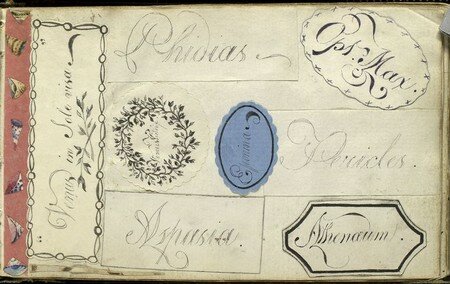 "Venus in Sole visa"
Phidias
Opt. Max.
Pericles.
Aspasia.
Athenæum!